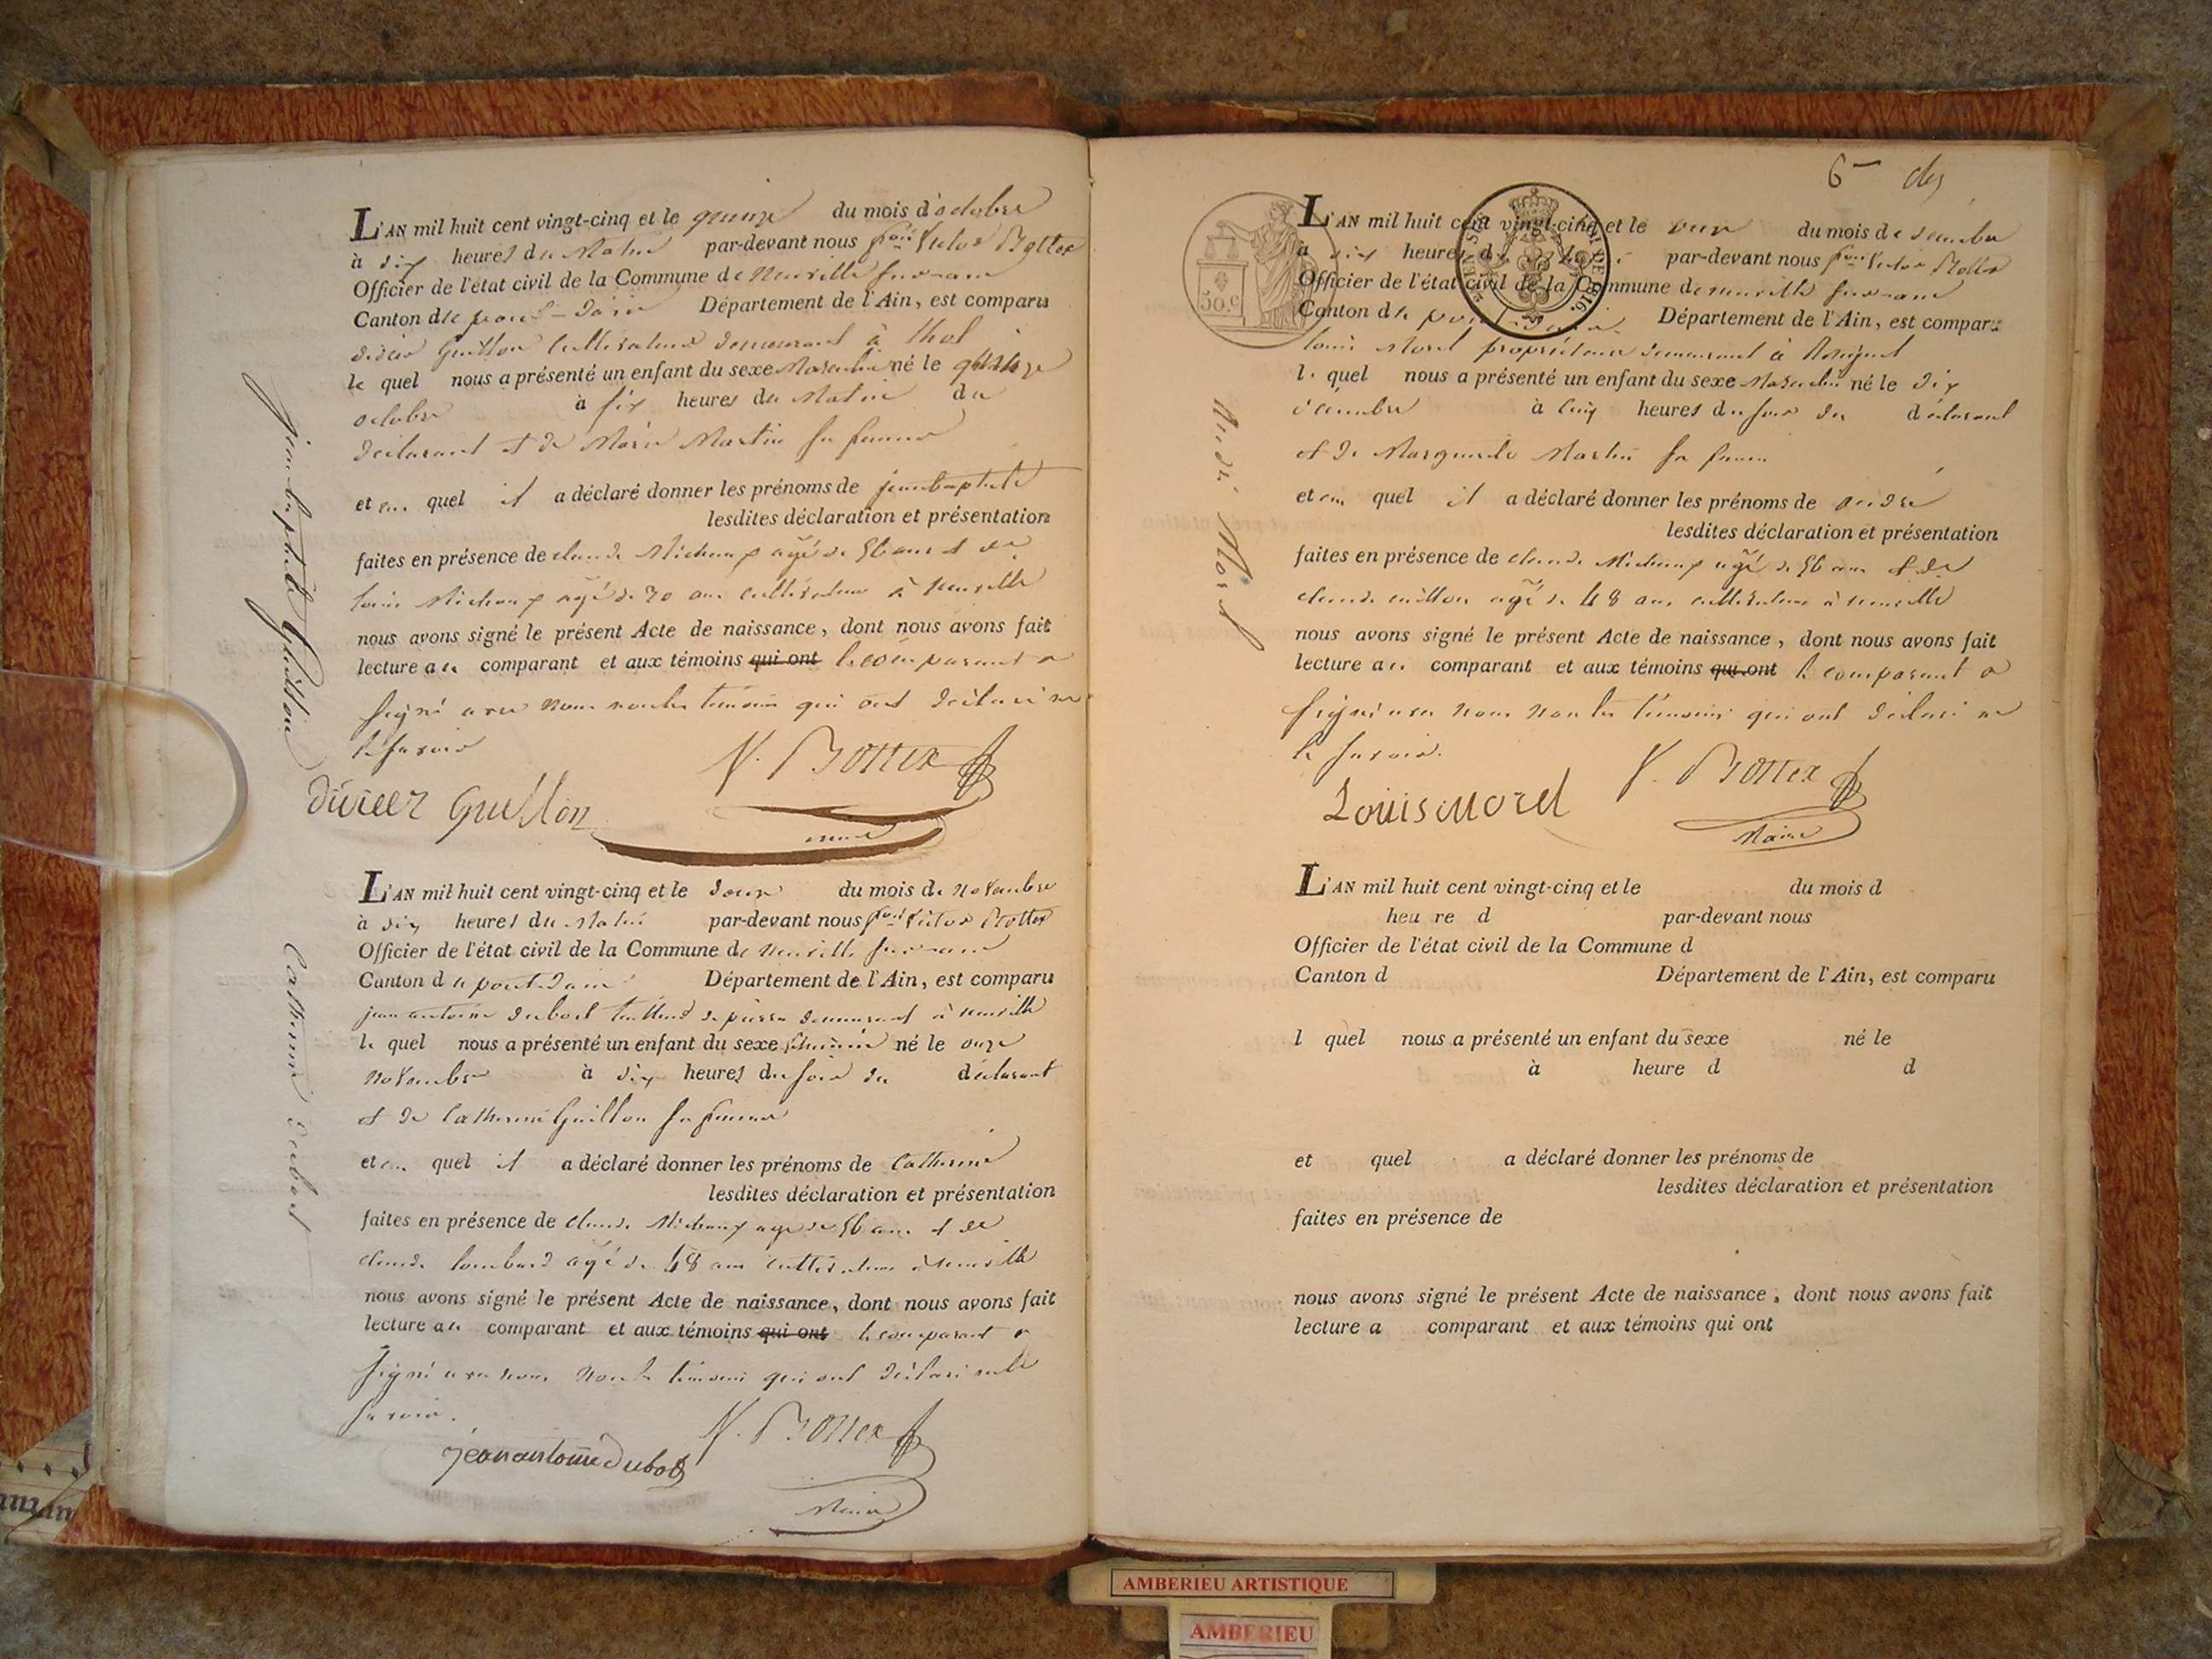 L'AN mil huit cent vingt-cinq et le quinze du mois d'octobre
à dix heures du Matin par-devant nous fçois Victor Bottex
Officier de l'état civil de la Commune de Neuville sur-ain
Canton de pont-d'ain Département de l'Ain, est comparu
didier Guillon cultivateur demeurant à thol
le quel nous a présenté un enfant du sexe Masculin né le quinze
octobre à six heures du Matin du
déclarant et de Marie Martin sa femme
et au quel il a déclaré donner les prénoms de jean baptiste
lesdites déclaration et présentation
faites en présence de claude Michaux agé de 56 ans et de
louis Michaux agé de 30 ans cultivateurs à neuville
nous avons signé le présent Acte de naissance, dont nous avons fait
lecture au comparant et aux témoins qui ont le comparant a
signé avec nous non les témoins qui ont déclaré ne
le savoir
V. Bottex
didier Guillon
maire
jean baptiste Guillon
L'AN mil huit cent vingt-cinq et le douze du mois de Novembre
à dix heures du Matin par-devant nous fçois Victor Bottex
Officier de l'état civil de la Commune de Neuville sur-ain
Canton de pont-d'ain Département de l'Ain, est comparu
jean antoine dubost tailleur de pierre demeurant à neuville
le quel nous a présenté un enfant du sexe féminin né le onze
Novembre à dix heures du soir du déclarant
et de Catherine Guillon sa femme
et au quel il a déclaré donner les prénoms de Catherine
lesdites déclaration et présentation
faites en présence de claude Michaux agé de 56 ans et de
claude lombard agé de 48 ans cultivateurs à neuville
nous avons signé le présent Acte de naissance, dont nous avons fait
lecture au comparant et aux témoins qui ont le comparant a
signé avec nous non les témoins qui ont déclaré ne le
savoir.
V. Bottex
jean antoine Dubost
Maire
Catherine dubost
6
L'AN mil huit cent vingt-cinq et le onze du mois de décembre
à dix heures du Matin par-devant nous fçois Victor Bottex
Officier de l'état civil de la Commune de neuville sur-ain
Canton de pont-d'ain Département de l'Ain, est comparu
50.c
1816
louis Morel propriétaire demeurant à
le quel nous a présenté un enfant du sexe Masculin né le dix
décembre à cinq heures du soir du déclarant
et de Marguerite Martin sa femme
et au quel il a déclaré donner les prénoms de andré
lesdites déclaration et présentation
faites en présence de claude Michaux agé de 56 ans et de
claude agé de 48 ans cultivateurs à neuville
nous avons signé le présent Acte de naissance, dont nous avons fait
lecture au comparant et aux témoins qui ont le comparant a
signé avec nous non les témoins qui ont déclaré ne
le savoir.
V. Bottex
Louis morel
Maire
André Morel
L'AN mil huit cent vingt-cinq et le du mois d
heu re d par-devant nous
Officier de l'état civil de la Commune d
Canton d Département de l'Ain, est comparu
l quel nous a présenté un enfant du sexe né le
à heure d d
et quel a déclaré donner les prénoms de
lesdites déclaration et présentation
faites en présence de
nous avons signé le présent Acte de naissance, dont nous avons fait
lecture a comparant et aux témoins qui ont
AMBERIEU ARTISTIQUE
AMBERIEU